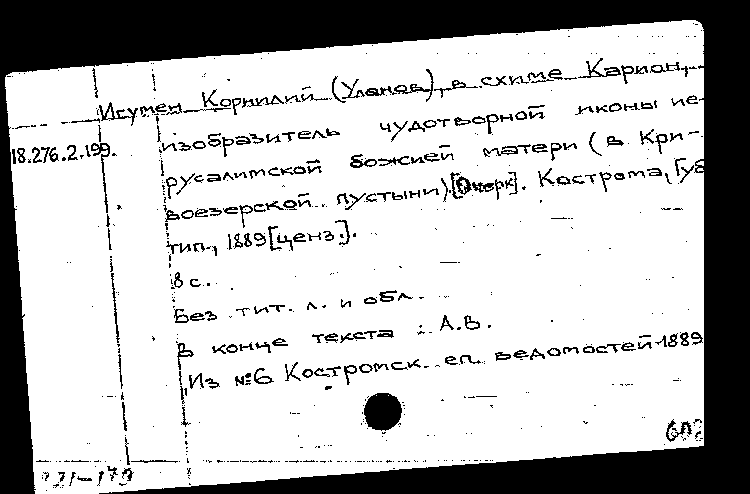 Игумен Корнилий (Уланов), в схиме Карион,
18.276.2.199.
изобразитель чудотворной иконы ие-
русалимской божией матери (в Кри-
воезерской пустыни).[Очерк]. Кострома, Губ
тип., 1889[ценз.].
8 с.
Без тит. л. и обл.
В конце текста : А.В.
Из №6 Костромск. еп. ведомостей 1889
602